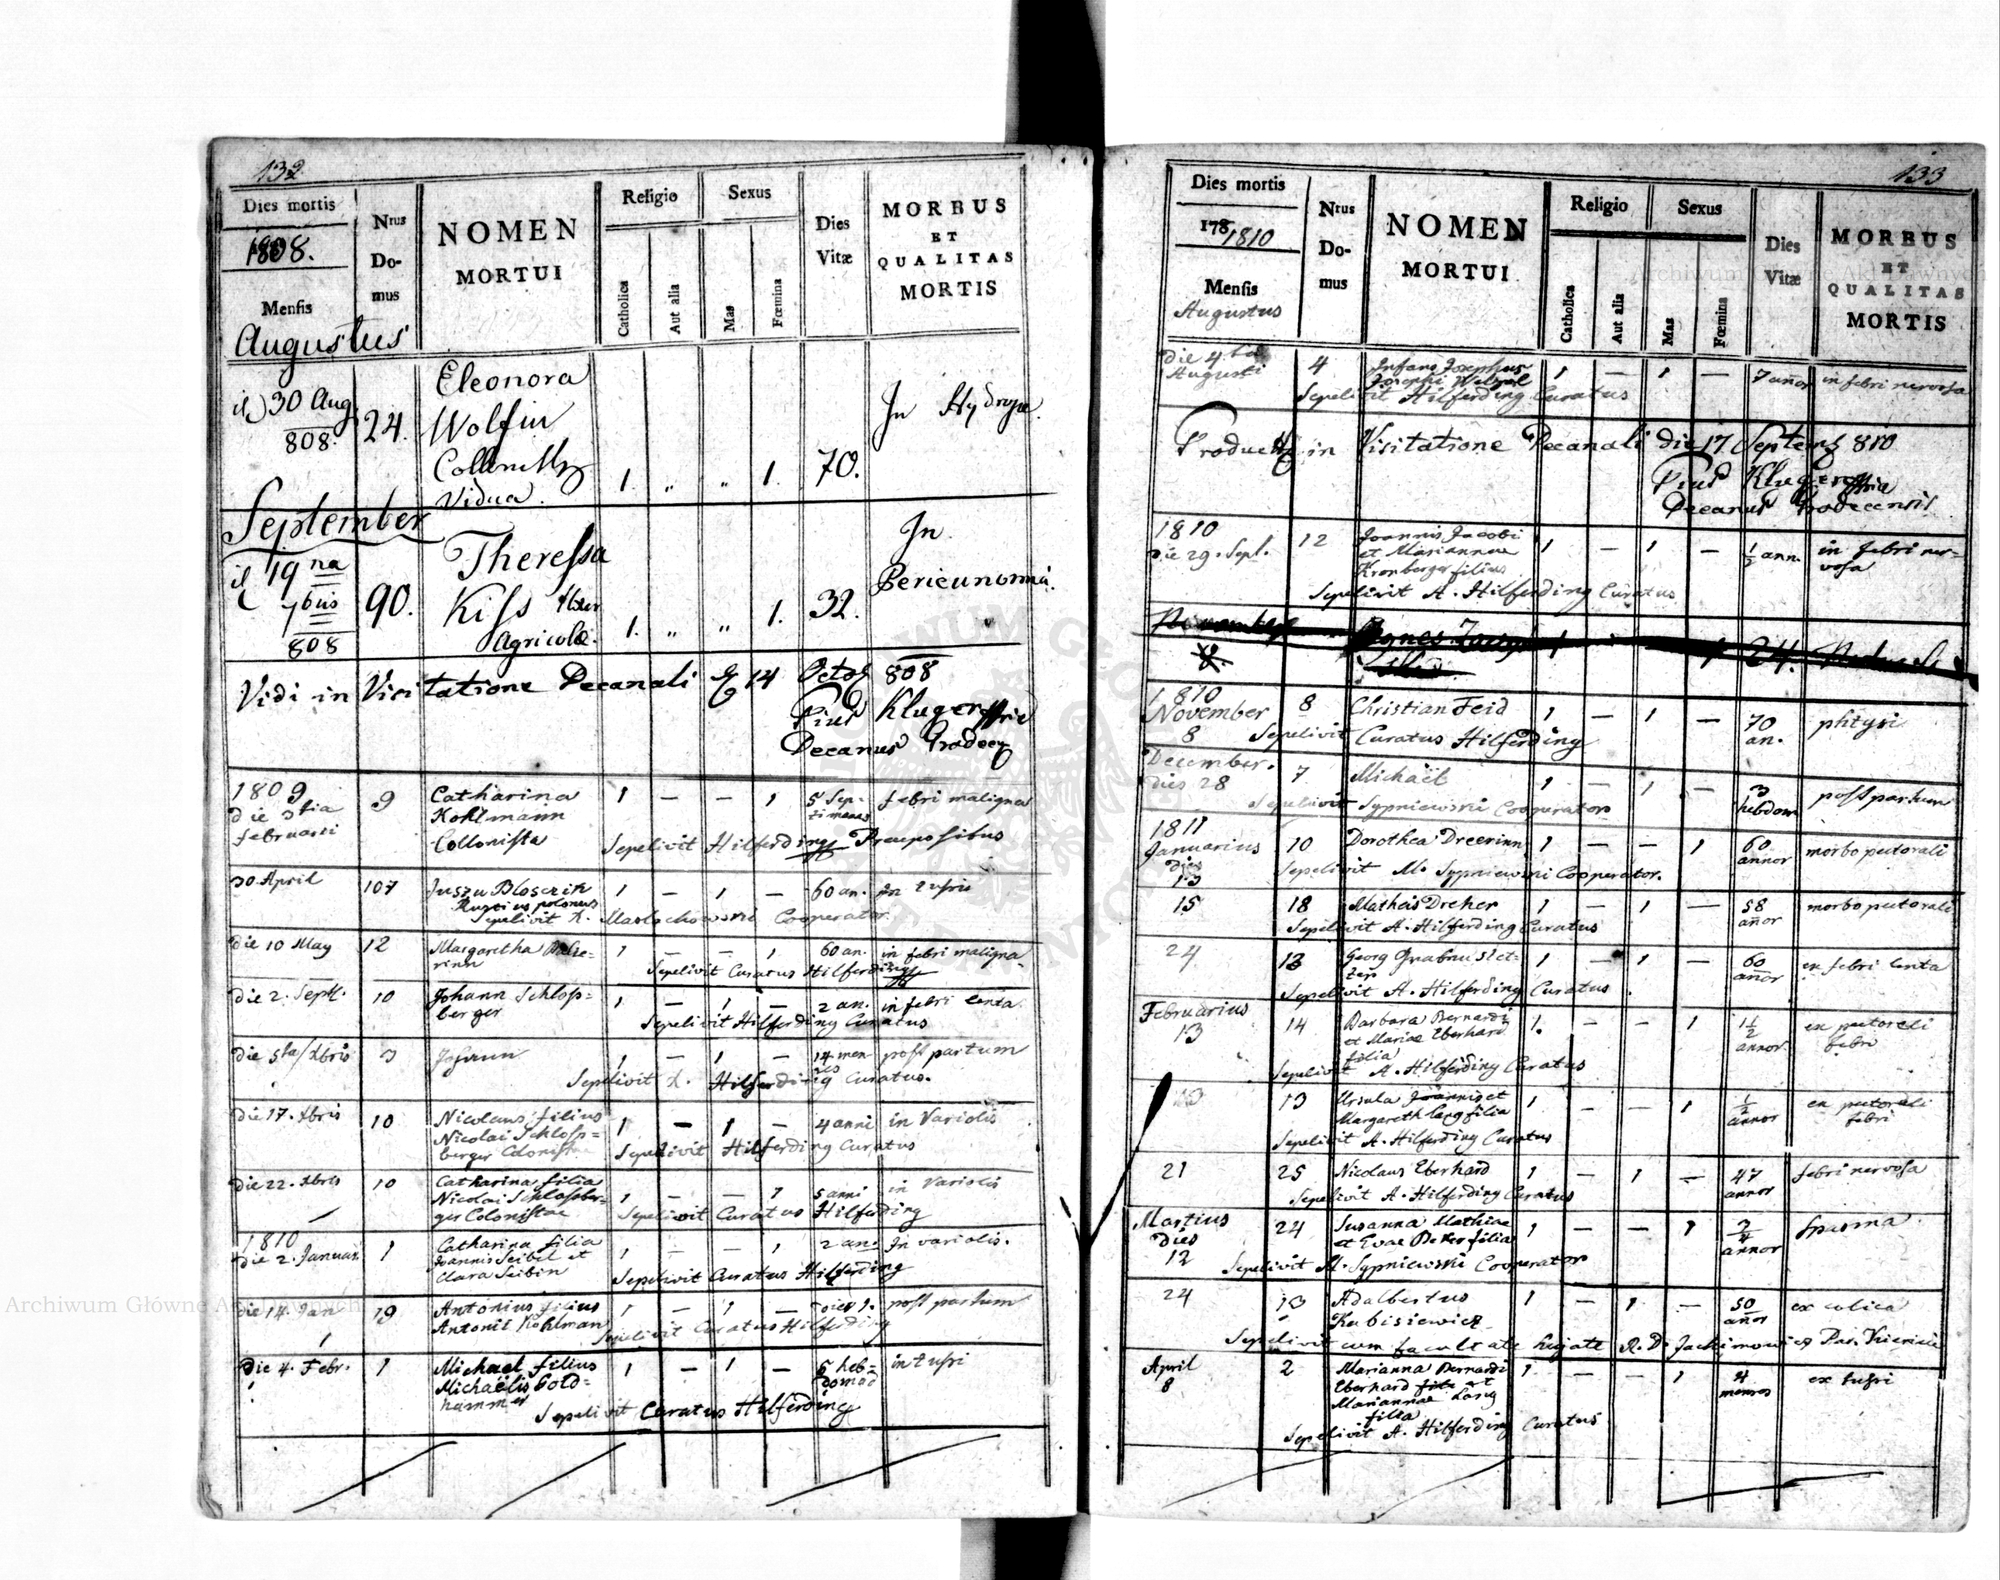 132
Dies mortis
1808.
Mensis
Augustus
Nrus
Do-
mus
NOMEN
MORTUI
Religio
Catholica
Aut alia
Sexus
Mas
Fœmina
Dies
Vitæ
MORBUS
ET
QUALITAS
MORTIS
30 Aug.
808.
24.
Eleonora
Wolfin
Vidua.
1. " " 1.
70.
In Hydrope.
September
19 na
7bris
808
90.
Theressa
Kiss
Agricolæ.
1. " " 1.
32.
In
Vidi in Visitatione Decanali 14 Octob 808
Pius Kluger
Decanus Grodec
1809
die 3tia
februarii
9
Catharina
Kohlmann
Collonista
1 — — 1
5 Sep-
timanas
febri maligna
Sepelivit Hilferding Praepositus
30 April
107
Rusticus polonus
1 — 1 —
60 an.
in tussi
Sepelivit Cooperator
die 10 May
12
Margaretha
rinn
1 — — 1
60 an.
in febri maligna
Sepelivit Curatus Hilferding
die 2. Sept.
10
Johann Schloss=
berger
1 — 1 —
2 an.
in febri lenta.
Sepelivit Hilferding Curatus
die 5ta Xbris
3
Johann
1 — 1 —
14 men-
ses
post partum
Sepelivit Hilferding Curatus.
die 17. Xbris
10
Nicolaus filius
Nicolai Schloss=
berger Colonistae
1 — 1 —
4 anni
in Variolis
Sepelivit Hilferding Curatus
die 22. Xbris
10
Catharina filia
Nicolai Schlossber-
ger Colonistae
1 — — 1
5 anni
in Variolis
Sepelivit Curatus Hilferding
1810
die 2. Januar.
1
Catharina filia
Joannis Seibel et
Clara Seibin
1 — — 1
2 an.
In variolis.
Sepelivit Curatus Hilferding
die 14. Jan
19
Antonius filius
Antonii Kohlman
1 — 1 —
post partum
Sepelivit Curatus Hilferding
die 4. Febr.
1
Michael filius
Michaelis Gold=
hammer
1 — 1 —
5 heb=
domad
in tussi
Sepelivit Curatus Hilferding
133
Dies mortis
178 1810
Mensis
Augustus
Nrus
Do-
mus
NOMEN
MORTUI
Religio
Catholica
Aut alia
Sexus
Mas
Fœmina
Dies
Vitæ
MORBUS
ET
QUALITAS
MORTIS
die 4ta
Augusti
4
Infans Josephus
Josephi Welzel
1 — 1 —
7 annor
in febri nervosa
Sepelivit Hilferding Curatus
in Visitatione Decanali die 17 Septemb 810
Pius Kluger
Decanus Grodecensis
1810
die 29. Sept.
12
Joannis Jacobi
et Mariannae
Kronberger filius
1 — 1 —
1/2 ann.
in febri ner-
vosa
Sepelivit A. Hilferding Curatus
Agnes
24.
1810
November
8
8
Christian Feid
1 — 1 —
70
an.
phtysi
Sepelivit Curatus Hilferding
December.
dies 28
7
Michaël
1 — 1 —
3
hebdom
post partum
Sepelivit Sypniewski Cooperator
1811
Januarius
dies
13
10
Dorothea Dreerinn
1 — — 1
60
annor
morbo pectorali
Sepelivit M. Sypniewski Cooperator.
15
18
Matheis Dreher
1 — 1 —
58
añor
morbo pectorali
Sepelivit A. Hilferding Curatus
24
13
Georg
1 — 1 —
60
añor
ex febri lenta
Sepelivit A. Hilferding Curatus
Februarius
13
14
Barbara Bernardi
et Mariae Eberhard
filia
1. — — 1
1 1/2
annor
ex pectorali
febri
Sepelivit A. Hilferding Curatus
13
13
Ursula Joannis et
Margareth Lang filia
1 — — 1
1/2
annor
ex pectorali
febri
Sepelivit A. Hilferding Curatus
21
25
Nicolaus Eberhard
1 — 1 —
47
annor
febri nervosa
Sepelivit A. Hilferding Curatus
Martius
Dies
12
24
Susanna Mathiae
et Evae Beker filia
1 — — 1
3/4
annor
spasma
Sepelivit M. Sypniewski Cooperator
24
13
Adalbertus
Kubisiewicz
1 — 1 —
50
añor
ex colica
Sepelivit cum facultate hujate R. D. Jachimowicz Par.
April
8
2
Marianna Bernardi
Eberhard et
Mariannae Lang
filia
1 — — 1
4
menses
ex tussi
Sepelivit A. Hilferding Curatus
Archiwum Główne Akt Dawnych
Archiwum Główne Akt Dawnych